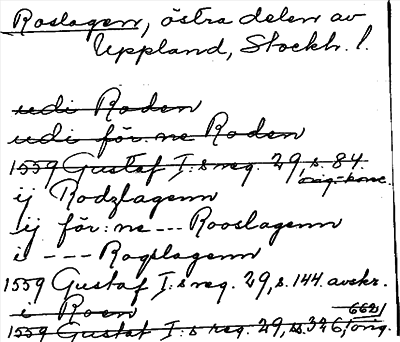 Roslagen, östra delen av
Uppland, Stockh. l.
udi Roden
udi för: ne Roden
1559 Gustaf I:s reg. 29, s. 84.
orig.-konc.
ij Rodzlagenn
ij för: ne --- Rooslagenn
i --- Rogslagenn
1559 Gustaf I:s reg. 29, s. 144. avskr.
i Roen
1559 Gustaf I:s reg. 29, s. 326, orig.